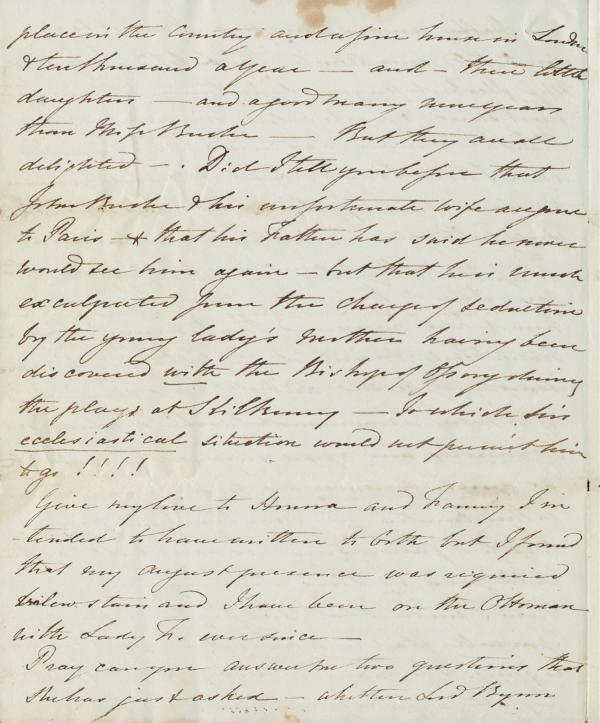 place in the Country and a fine house in London
& ten thousand a year — and – three little
daughters — and a good many more years
than Miss Burke — But they are all
delighted —. Did I tell you before that
John Burke & his unfortunate wife are gone
to Paris – & that his Father has said he never
would see him again – but that he is much
exculpated from the charge of seduction
by the young lady's mother having been
discovered with the Bishop of Ossory during
the plays at Kilkenny — to which his
ecclesiastical situation would not permit him
to go !!!!
Give my love to Honora and Fanny I in
-tended to have written to both but I found
that my august presence was required
below stairs and I have been on the Ottoman
with Lady F. ever since —
Pray can you answer me two questions that
she has just asked – whether Lord Byron